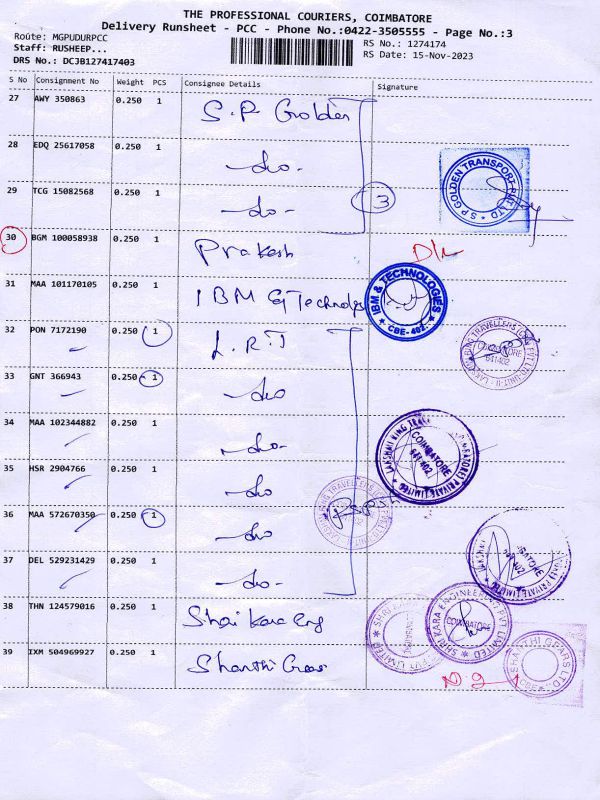 THE PROFESSIONAL COURIERS, COIMBATORE
Delivery Runsheet - PCC - Phone No.:0422-3505555 - Page No.:3
Route: MGPUDURPCC
Staff: RUSHEEP...
DRS No.: DCJB127417403
RS No.: 1274174
RS Date: 15-Nov-2023
S No Consignment No Weight PCS Consignee Details Signature
27 AWY 350863 0.250 1 S.P Golden
28 EDQ 25617058 0.250 1 -do-
S P GOLDEN TRANSPORT PVT LTD
29 TCG 15082568 0.250 1 -do- 3
30 BGM 100058938 0.250 1 Prakash
31 MAA 101170105 0.250 1 IBM & Technologies
IBM & TECHNOLOGIES
CBE-402
32 PON 7172190 0.250 1 L.R.T
COIMBATORE
641402
33 GNT 366943 0.250 1 -do
34 MAA 102344882 0.250 1 -do-
COIMBATORE
641 402
35 HSR 2904766 0.250 1 -do
36 MAA 572670350 0.250 1 -do
37 DEL 529231429 0.250 1 -do-
38 THN 124579016 0.250 1 Shri Kara Eng
SHRI KARA ENGINEERING PVT LIMITED
COIMBATORE
39 IXM 504969927 0.250 1 Shanthi Gears
SHANTHI GEARS LTD
CBE